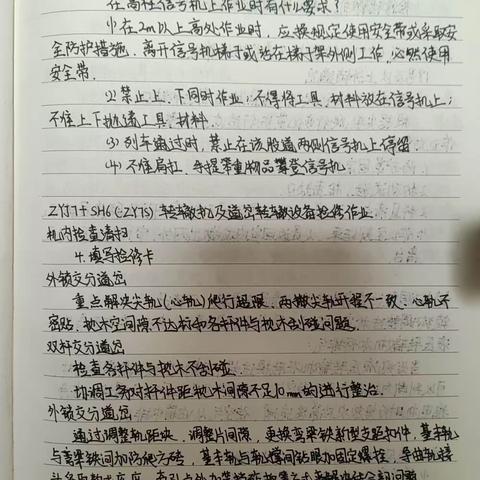 在高柱信号机上作业时有什么要求?
⑴在2m以上高处作业时,应按规定使用安全带或采取安
全防护措施.离开信号机梯子或站在梯子架外侧工作,必然使用
安全带.
⑵禁止上、下同时作业;不得将工具,材料放在信号机上;
不准上下抛递工具,材料.
⑶列车通过时,禁止在该股道两侧信号机上停留.
⑷不准肩扛、手提笨重物品攀登信号机.
ZYJ7+SH6(ZYJS)转辙机及道岔转辙设备检修作业.
机内检查清扫
4.填写检修卡
外锁交分道岔
重点解决尖轨(心轨)爬行超限,两撤尖轨开程不一致、心轨不
密贴,枕木空间隙不达标和各杆件与枕木刮碰问题.
双杆交分道岔
检查各杆件与枕木不刮碰.
协调工务对杆件距枕木间隙不足10mm的进行整治.
外锁交分道岔
通过调整轨距块、调整片间隙,更换弯梁铁新型支距扣件,基本轨
与弯梁铁间加防爬方砖,基本轨与轨撑间钻眼加固定螺栓,导曲轨接